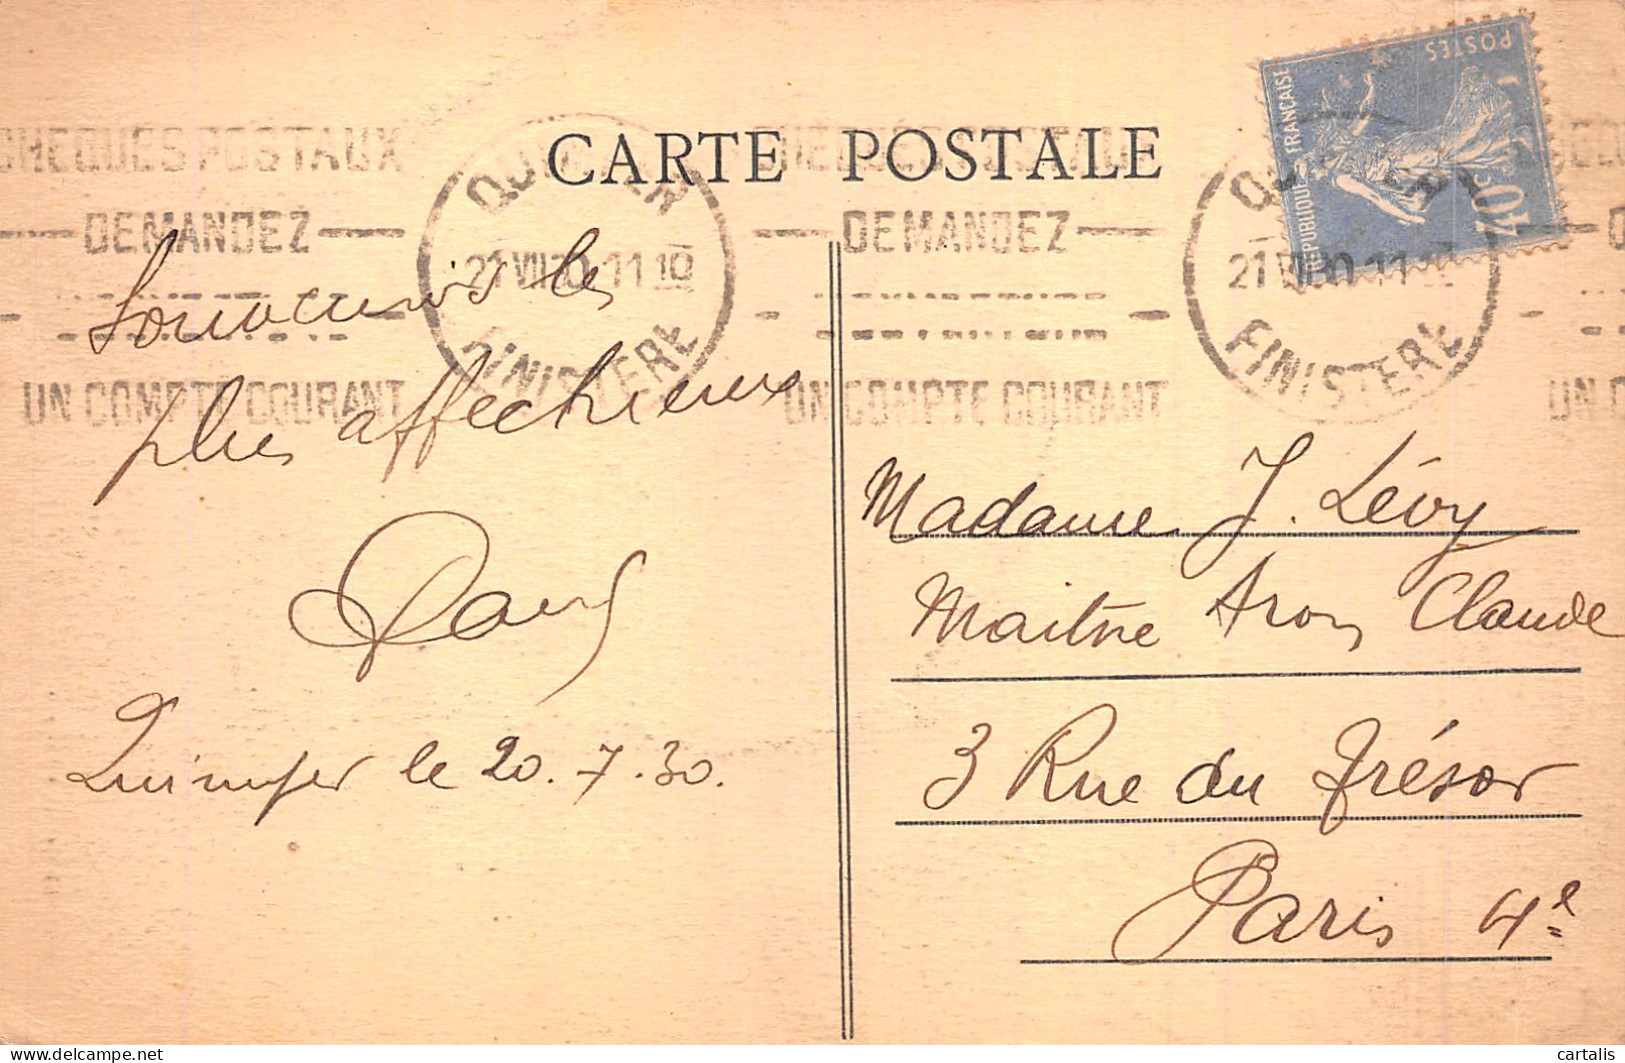 CARTE POSTALE
POSTES
REPUBLIQUE FRANÇAISE
40c
CHEQUES POSTAUX
DEMANDEZ
UN COMPTE COURANT
QUIMPER
21 VII 30 11 10
FINISTERE
DEMANDEZ
UN COMPTE COURANT
21 VII 30 11
FINISTERE
Souvenirs les
plus affectueux
Quimper le 20.7.30.
Madame J. Lévy
Maitre Aron Claude
3 Rue du Trésor
Paris 4e
delcampe.net
cartalis